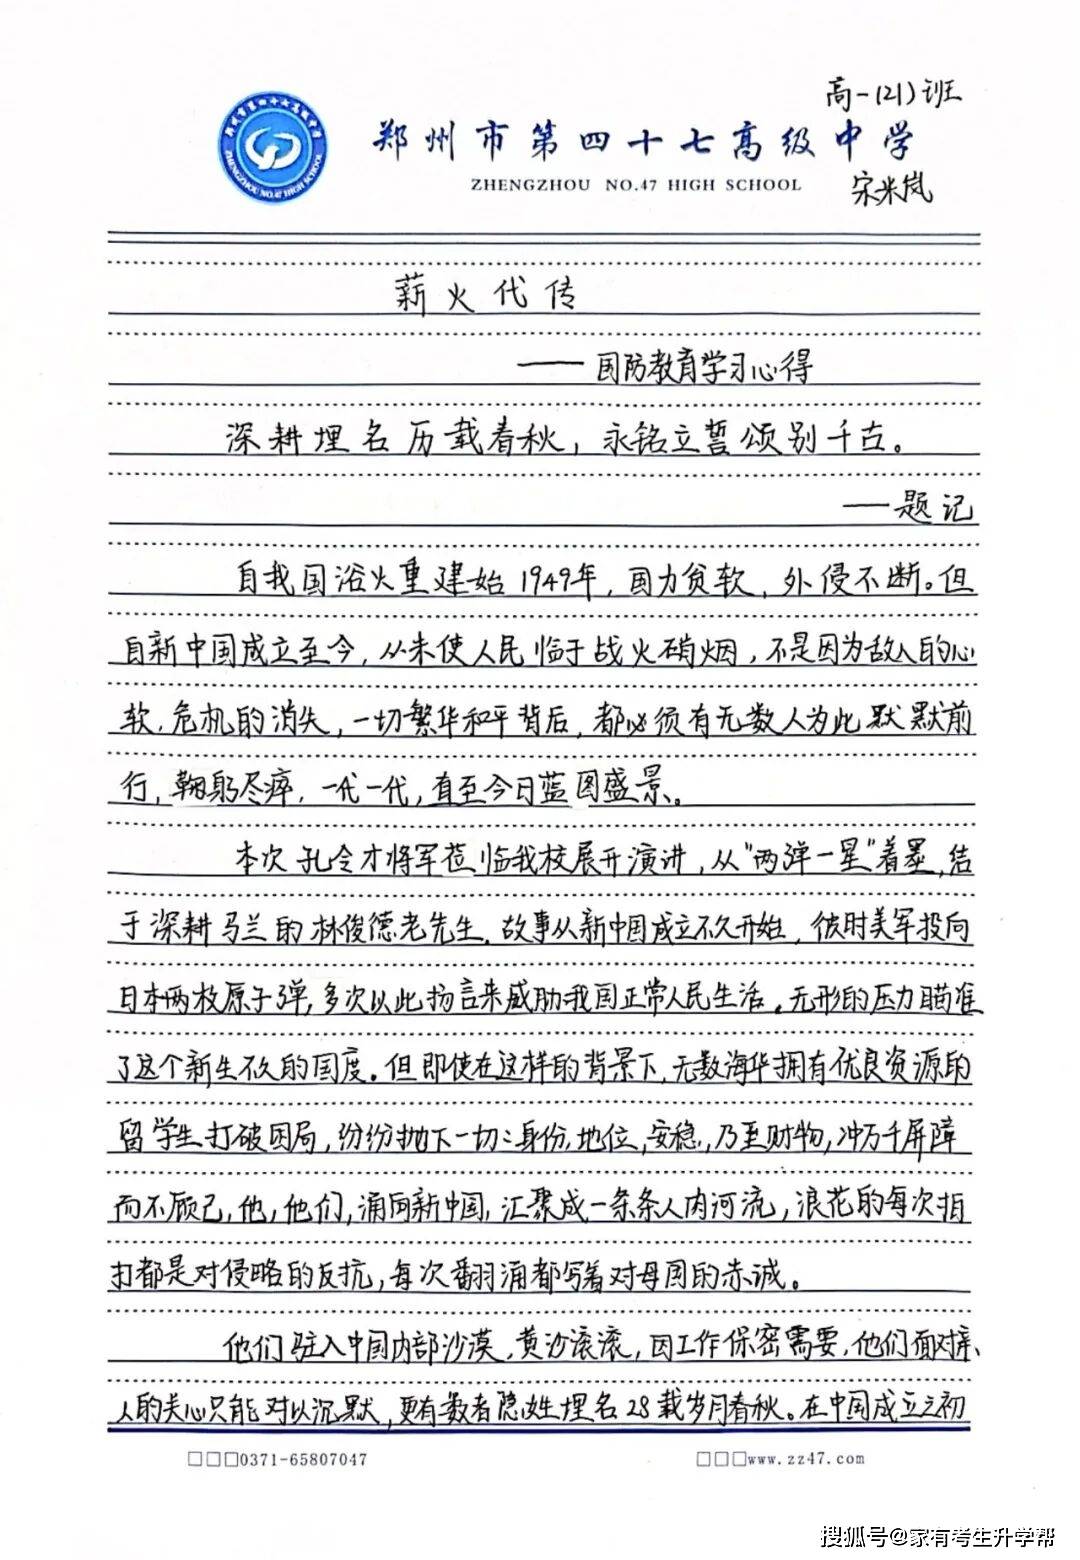 高一(21)班
郑州市第四十七高级中学
ZHENGZHOU NO.47 HIGH SCHOOL
宋米岚
郑州市第四十七高级中学
ZHENGZHOU NO.47 HIGH SCHOOL
薪火代传
——国防教育学习心得
深耕埋名历载春秋，永铭立誓颂别千古。
——题记
自我国浴火重建始1949年，国力贫软，外侵不断。但
自新中国成立至今，从未使人民临于战火硝烟，不是因为敌人的心
软、危机的消失，一切繁华和平背后，都必须有无数人为此默默前
行，鞠躬尽瘁，一代一代，直至今日蓝图盛景。
本次孔令才将军莅临我校展开演讲，从“两弹一星”着墨，结
于深耕马兰的林俊德老先生。故事从新中国成立不久开始，彼时美军投向
日本两枚原子弹，多次以此扬言来威胁我国正常人民生活。无形的压力瞄准
了这个新生不久的国度。但即使在这样的背景下，无数海华拥有优良资源的
留学生打破困局，纷纷抛下一切：身份，地位，安稳，乃至财物，冲万千屏障
而不顾己，他，他们，涌向新中国，汇聚成一条条人肉河流，浪花的每次拍
打都是对侵略的反抗，每次翻涌都写着对母国的赤诚。
他们驻入中国内部沙漠，黄沙滚滚，因工作保密需要，他们面对亲
人的关心只能对以沉默，更有数者隐姓埋名28载岁月春秋。在中国成立之初
□□□0371-65807047
□□□www.zz47.com
搜狐号@家有考生升学帮